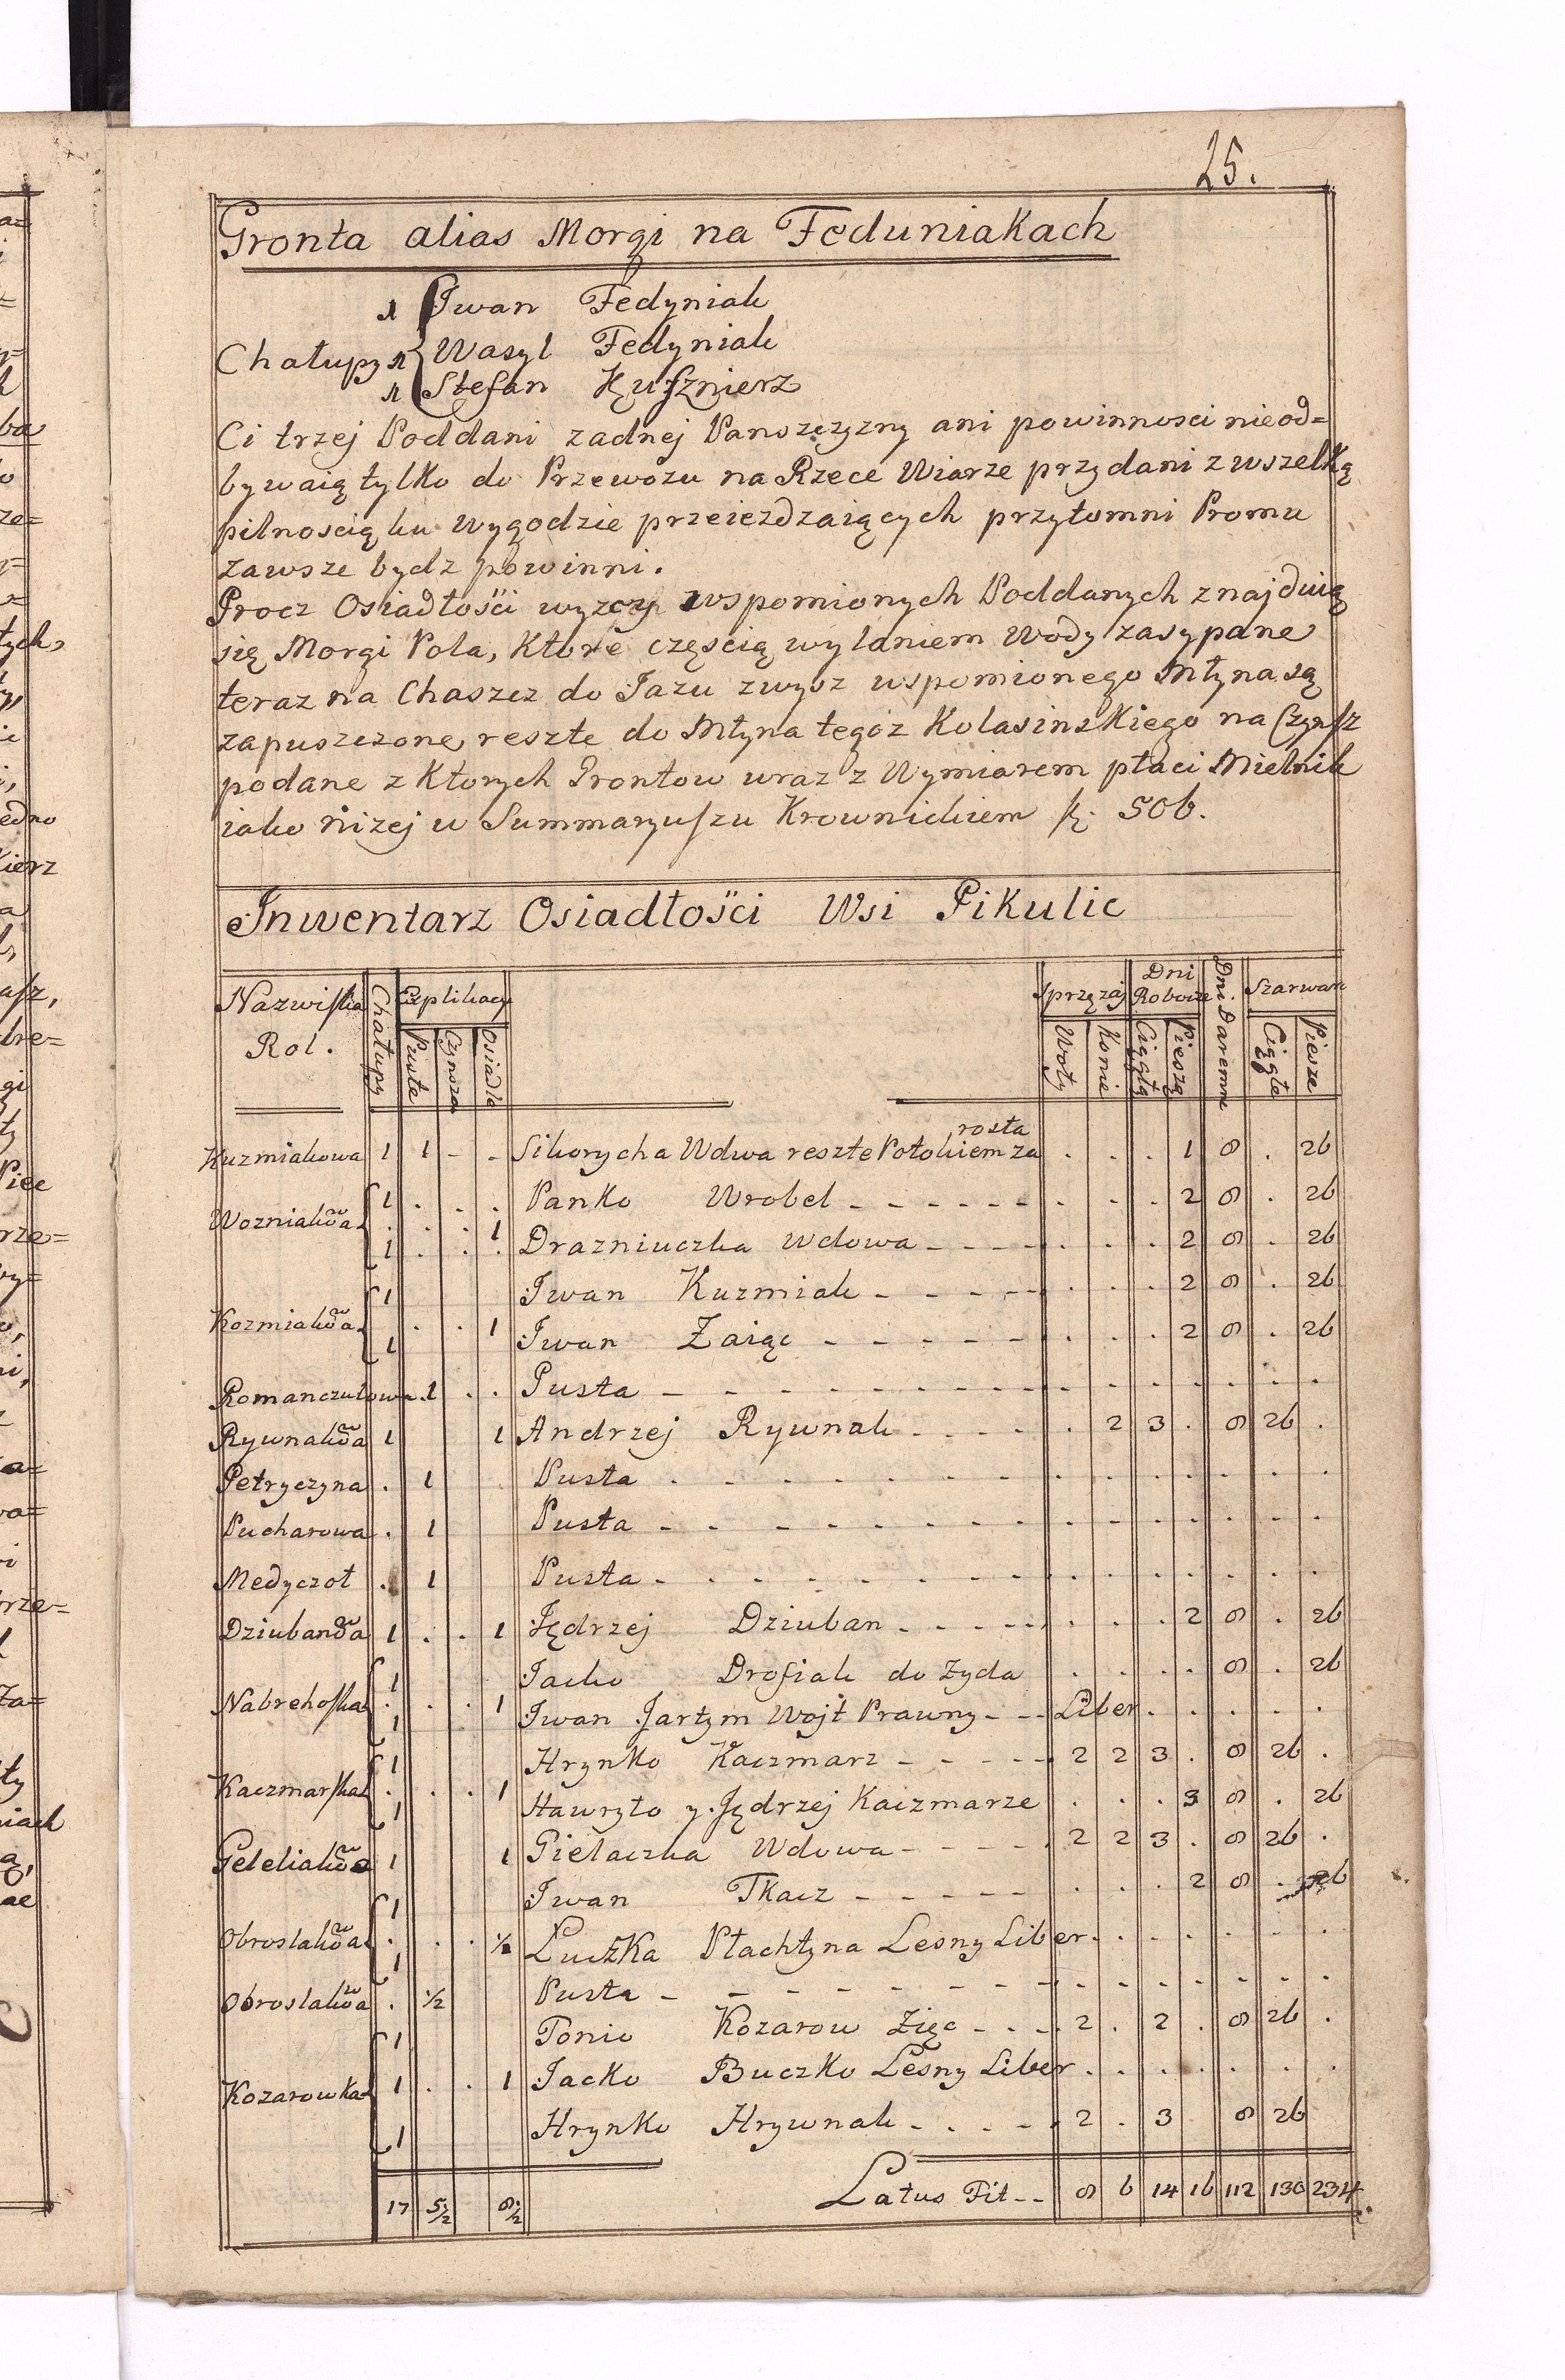 25.
Gronta alias Morgi na Feduniakach
1 Iwan Fedyniak
Chałupy 1 Wasyl Fedyniak
1 Stefan Kuſznierz
Ci trzej Poddani zadnej Panszczyzny ani powinnosci nieod=
bywaią tylko do Przewozu na Rzece Wiarze przydani z wszelką
pilnoscią ku wygodzie przeiezdzaiących przytomni Promu
zawsze bydz powinni.
Procz Osiadłości wyzey wspomionych Poddanych znajduią
się Morgi Pola, Które częscią wylaniem Wody zasypane
teraz na Chaszcz do Jazu zwysz wspomionego Młyna są
zapuszczone, reszte do Młyna tegoz Kolasinskiego na Czynſz
podane z Ktorych Grontow wraz z Wymiarem płaci Mielnik
iako nizej w Summaryuſzu Krownickiem 506.
Inwentarz Osiadłości Wsi Pikulic
Nazwiſka Rol. Chałupy Explikacy Puste Czynszo Osiadłe Sprzęzaj Woły Konie Dni Robocze Ciągłą Pieszą Dni Daremne Szarwark Ciągłe Piesze
rosta
Kuzmiakowa 1 1 - - Sikorycha Wdwa reszte Potokiem za . . . 1 8 . 26
Wozniakowa 1 . . . Panko Wrobel - - - - - - . . . 2 8 . 26
1 . . 1 Drazniuczka Wdowa - - - - . . . 2 8 . 26
1 Iwan Kuzmiak - - - - - . . . 2 8 . 26
Kozmiakowa 1 . . 1 Iwan Zaiąc - - - - - . . . 2 8 . 26
Romanczukowa . 1 . . Pusta - - - - - - - -
Rywnakowa 1 1 Andrzej Rywnak - - - - . 2 3 . 8 26 .
Petryczyna . 1 Pusta - - - - - - - -
Pucharowa . 1 Pusta - - - - - - - -
Medyczot . 1 Pusta - - - - - - - -
Dziubanowa 1 . . 1 Jędrzej Dziuban - - - - - . . . 2 8 . 26
1 Jacko Drofiak do Zyda . . . . 8 . 26
Nabrehoſka 1 . . 1 Iwan Jartym Wojt Prawny - - - Liber . . . . . .
1 Hrynko Kaczmarz - - - - - 2 2 3 . 8 26 .
Kaczmarſka 1 . . 1 Hawryło y Jędrzej Kaczmarze . . . 3 8 . 26
Geleliakowa 1 1 Gielaczka Wdowa - - - - 2 2 3 . 8 26 .
1 Iwan Tkacz - - - - - . . . 2 8 . 26
Obroslakowa 1 . . ½ Luczka Płachtyna Lesny Liber . . . . . . .
Obroslakowa . ½ Pusta - - - - - - - -
1 Tonio Kozarow Zięc - - - 2 . 2 . 8 26 .
Kozarowka 1 . . 1 Jacko Buczko Lesny Liber . . . . . . .
1 Hrynko Hrywnak - - - - - 2 . 3 8 26
17 5½ 8½ Latus Fit - - 8 6 14 16 112 130 234